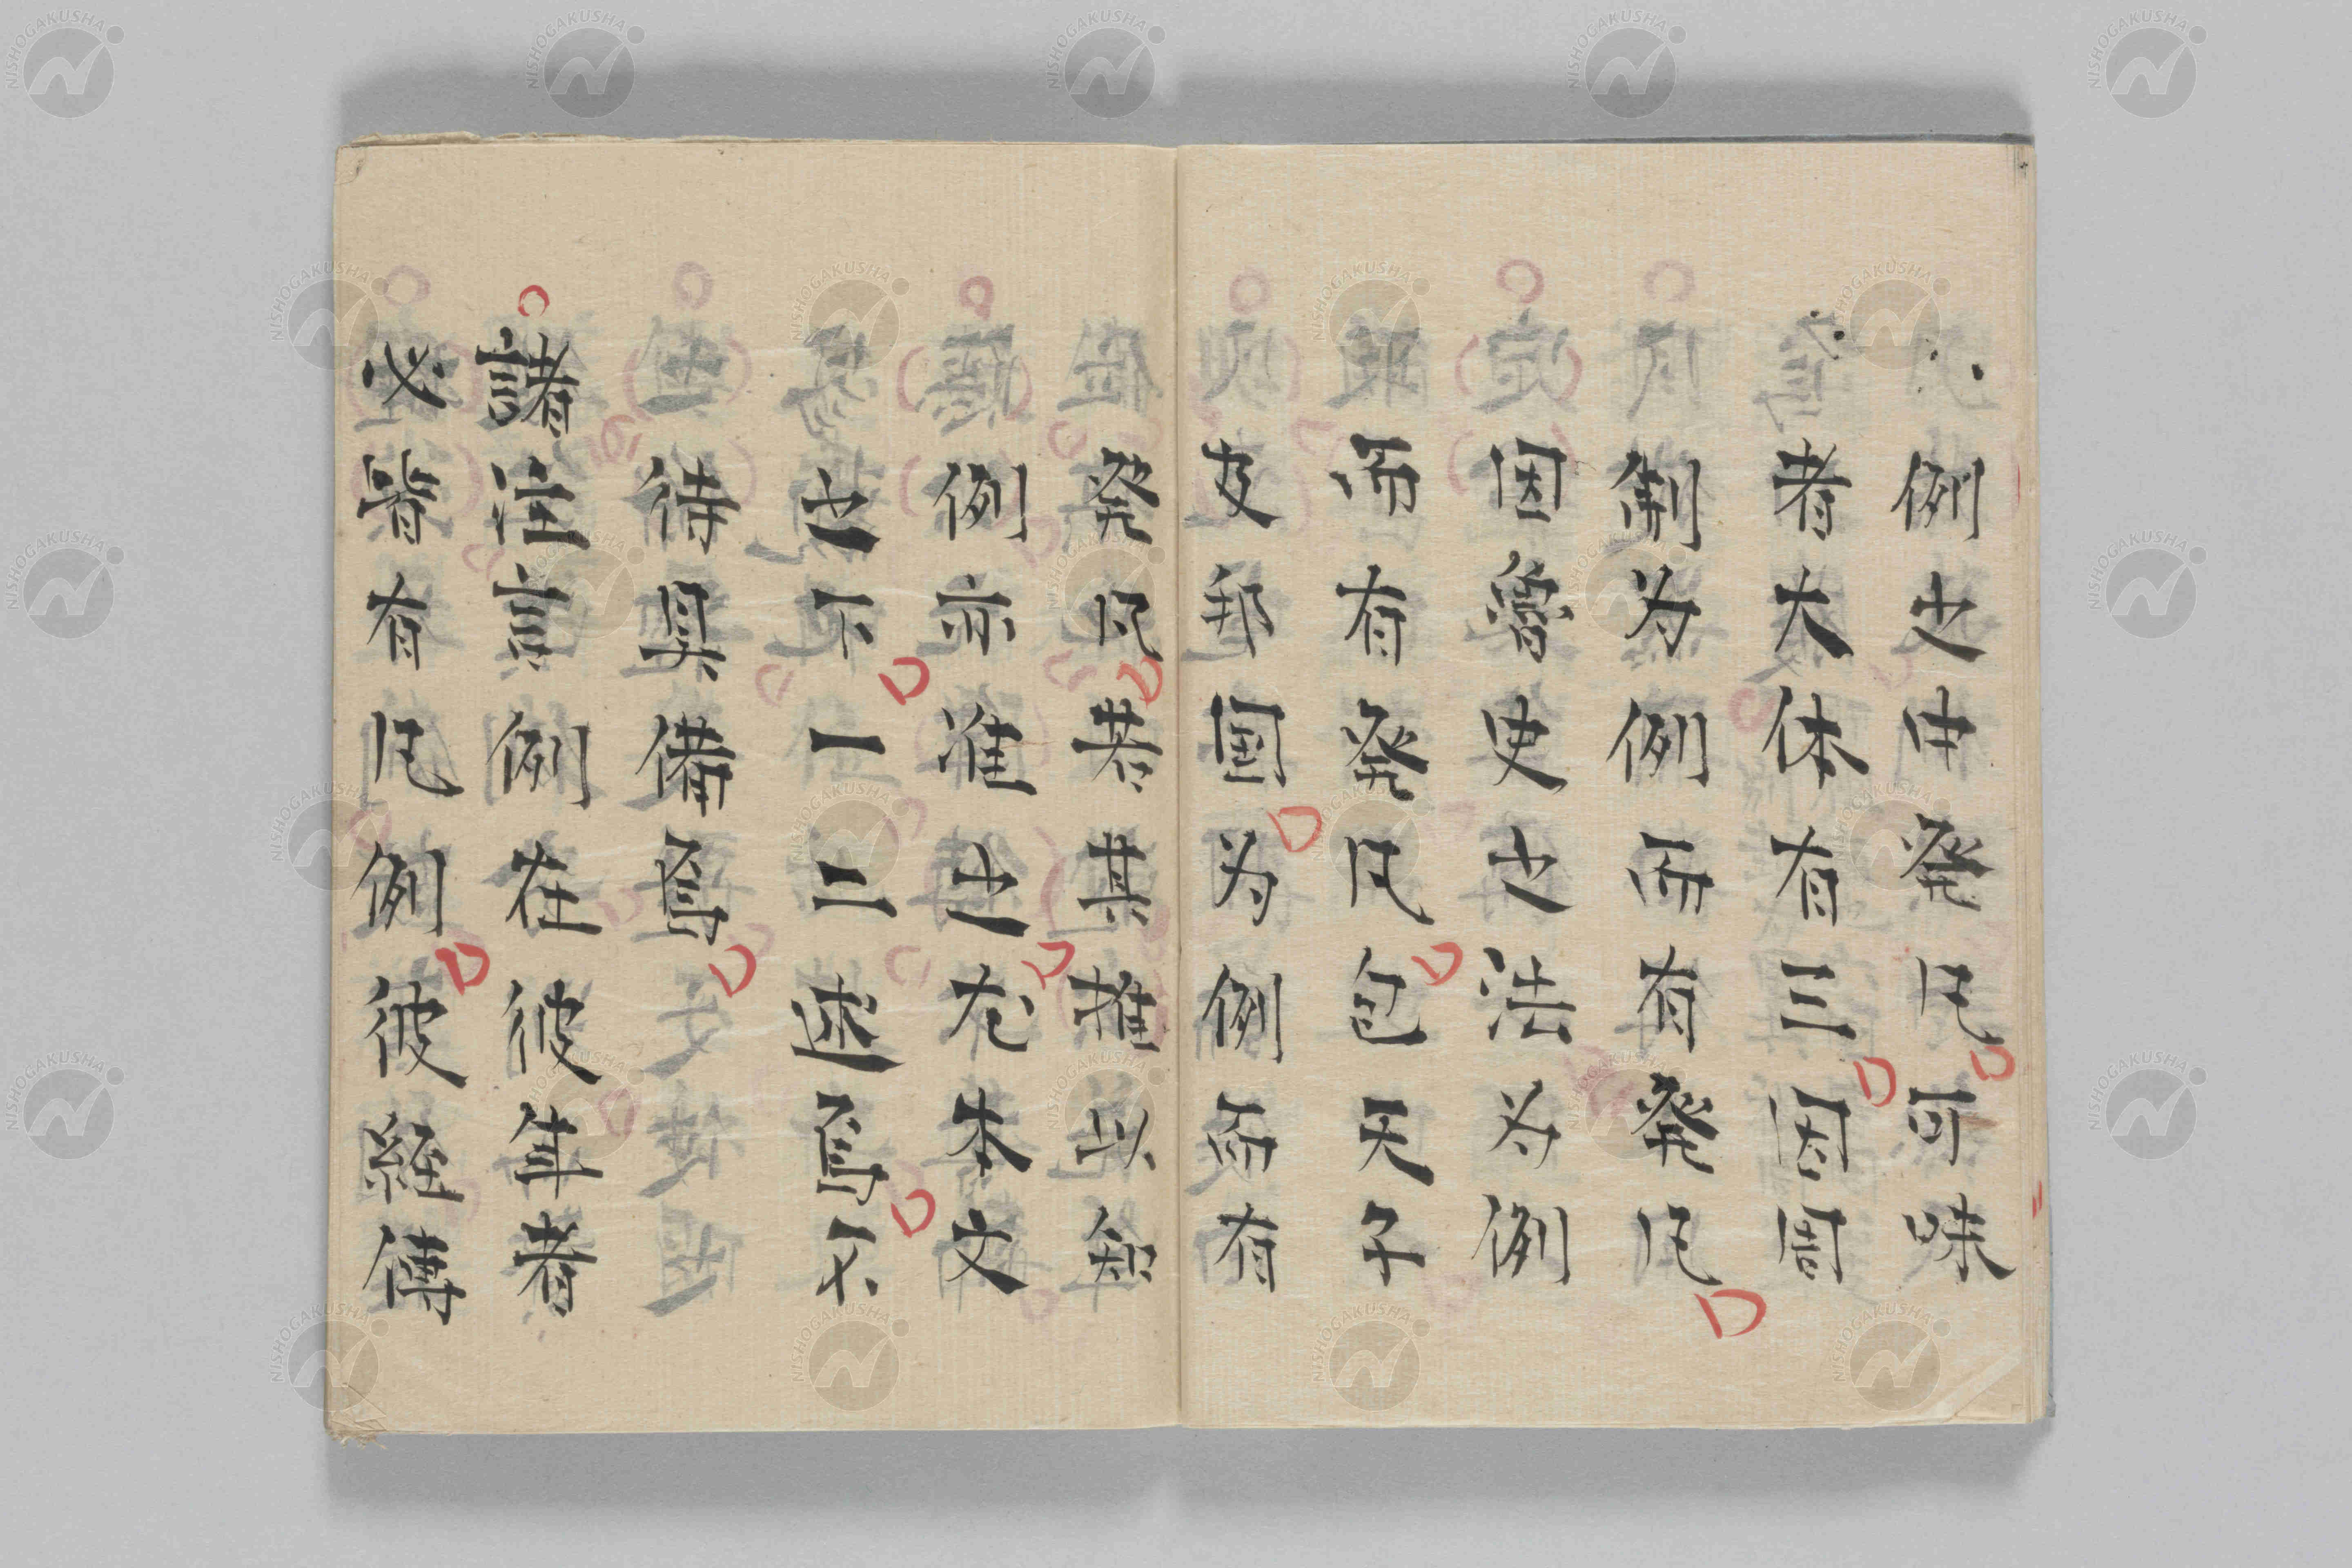 例之中発凡可味
者大体有三因周
制为例而有発凡
因魯史之法为例
而有発凡包天子
友邦国为例而有
発凡若其推以知
例亦准之尨本文
之下一二述焉不
待具備焉
諸注言例在彼年者
必皆有凡例彼経傳
NISHOGAKUSHA